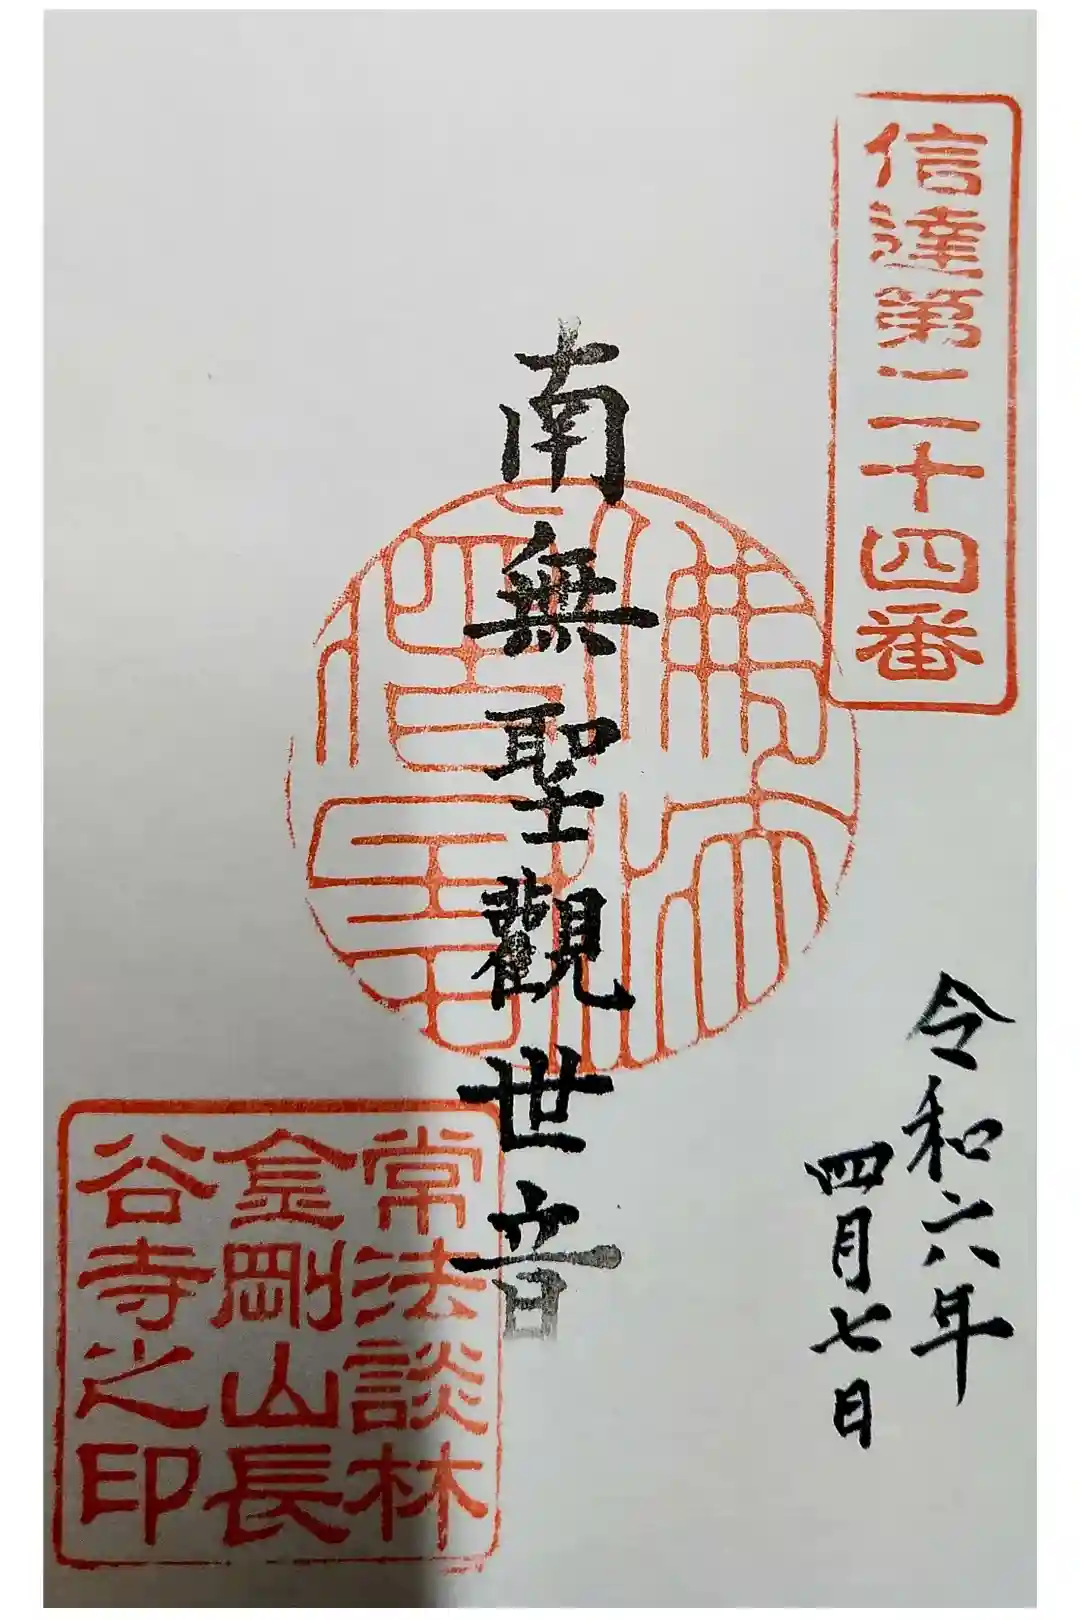 信達第二十四番
令和六年
四月七日
南無聖觀世音
佛法僧寶
常法談林
金剛山長
谷寺之印